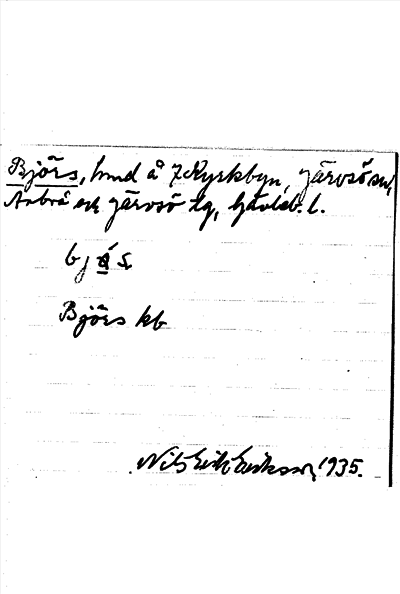 Björs, hmd å 7 Kyrkbyn, Järvsö sn,
Arbrå och Järvsö tg, Gävleb. l.
bjá̤s
Björs kb
Nils Erik Eriksson, 1935.